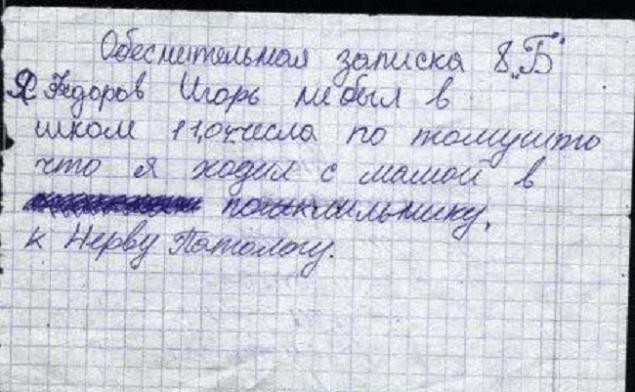 Обеснительная записка 8 „Б"
Я Федоров Игорь небыл в
школе 11,04 числа по томушто
что я ходил с мамой в
к Нерву Патологу.